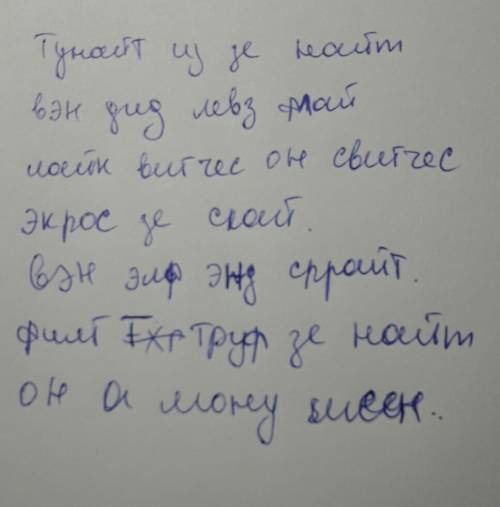 Тунайт из зе найт
вэн дид левз флай
лайк витчес он свитчес
экрос зе скай.
Вэн элф энд спрайт.
флит трур зе найт
он а мону шеен..